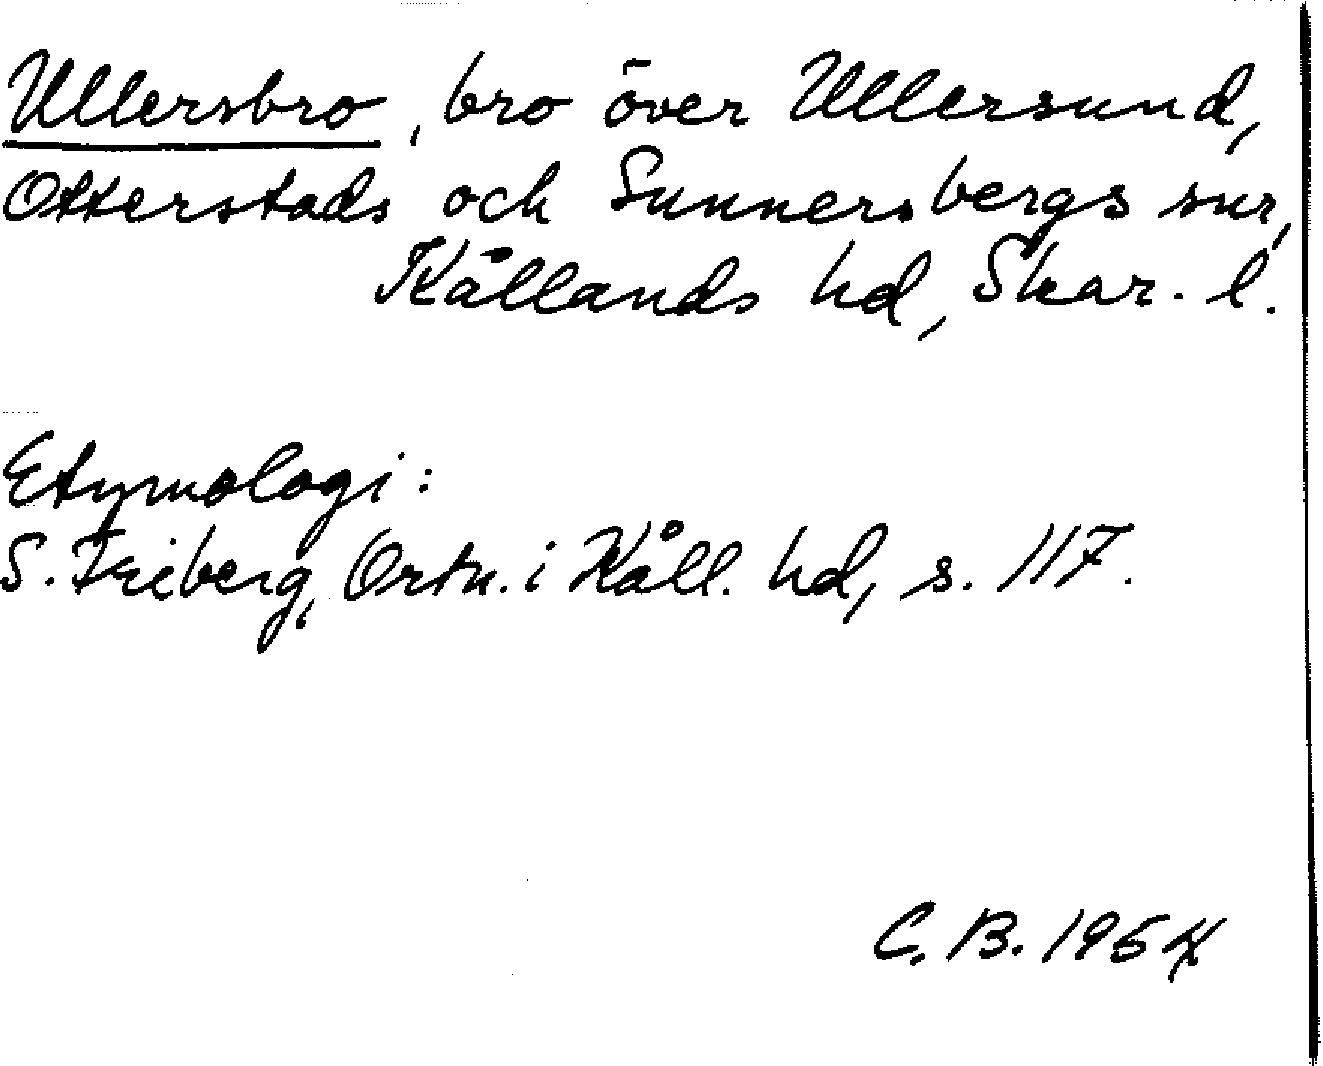 Ullersbro, bro över Ullersund,
Otterstads och Sunnersbergs snr,
Kållands hd, Skar. l.
Etymologi:
S. Feiberg, Ortn. i Kåll. hd, s. 117.
C. B. 1954